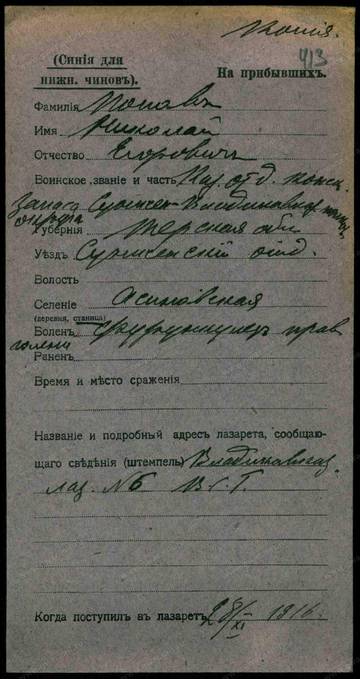 Копія.
413
(Синія для
нижн. чиновъ).
На прибывшихъ.
Фамилія Поповъ
Имя Николай
Отчество Егоровичъ
Воинское званіе и часть Каз. отд. конск.
Запаса Сунжен-Владикавказ.
округа
Губернія Терская обл.
Уѣздъ Сунженскій отд.
Волость
Селеніе Асиновская
(деревня, станица)
Боленъ Фурункулез прав
голени
Раненъ
Время и мѣсто сраженія
Названіе и подробный адресъ лазарета, сообщаю-
щаго свѣдѣнія (штемпель) Владикавказ.
лаз. №6 В.С.Г.
Когда поступилъ въ лазаретъ 28/XI 1916.